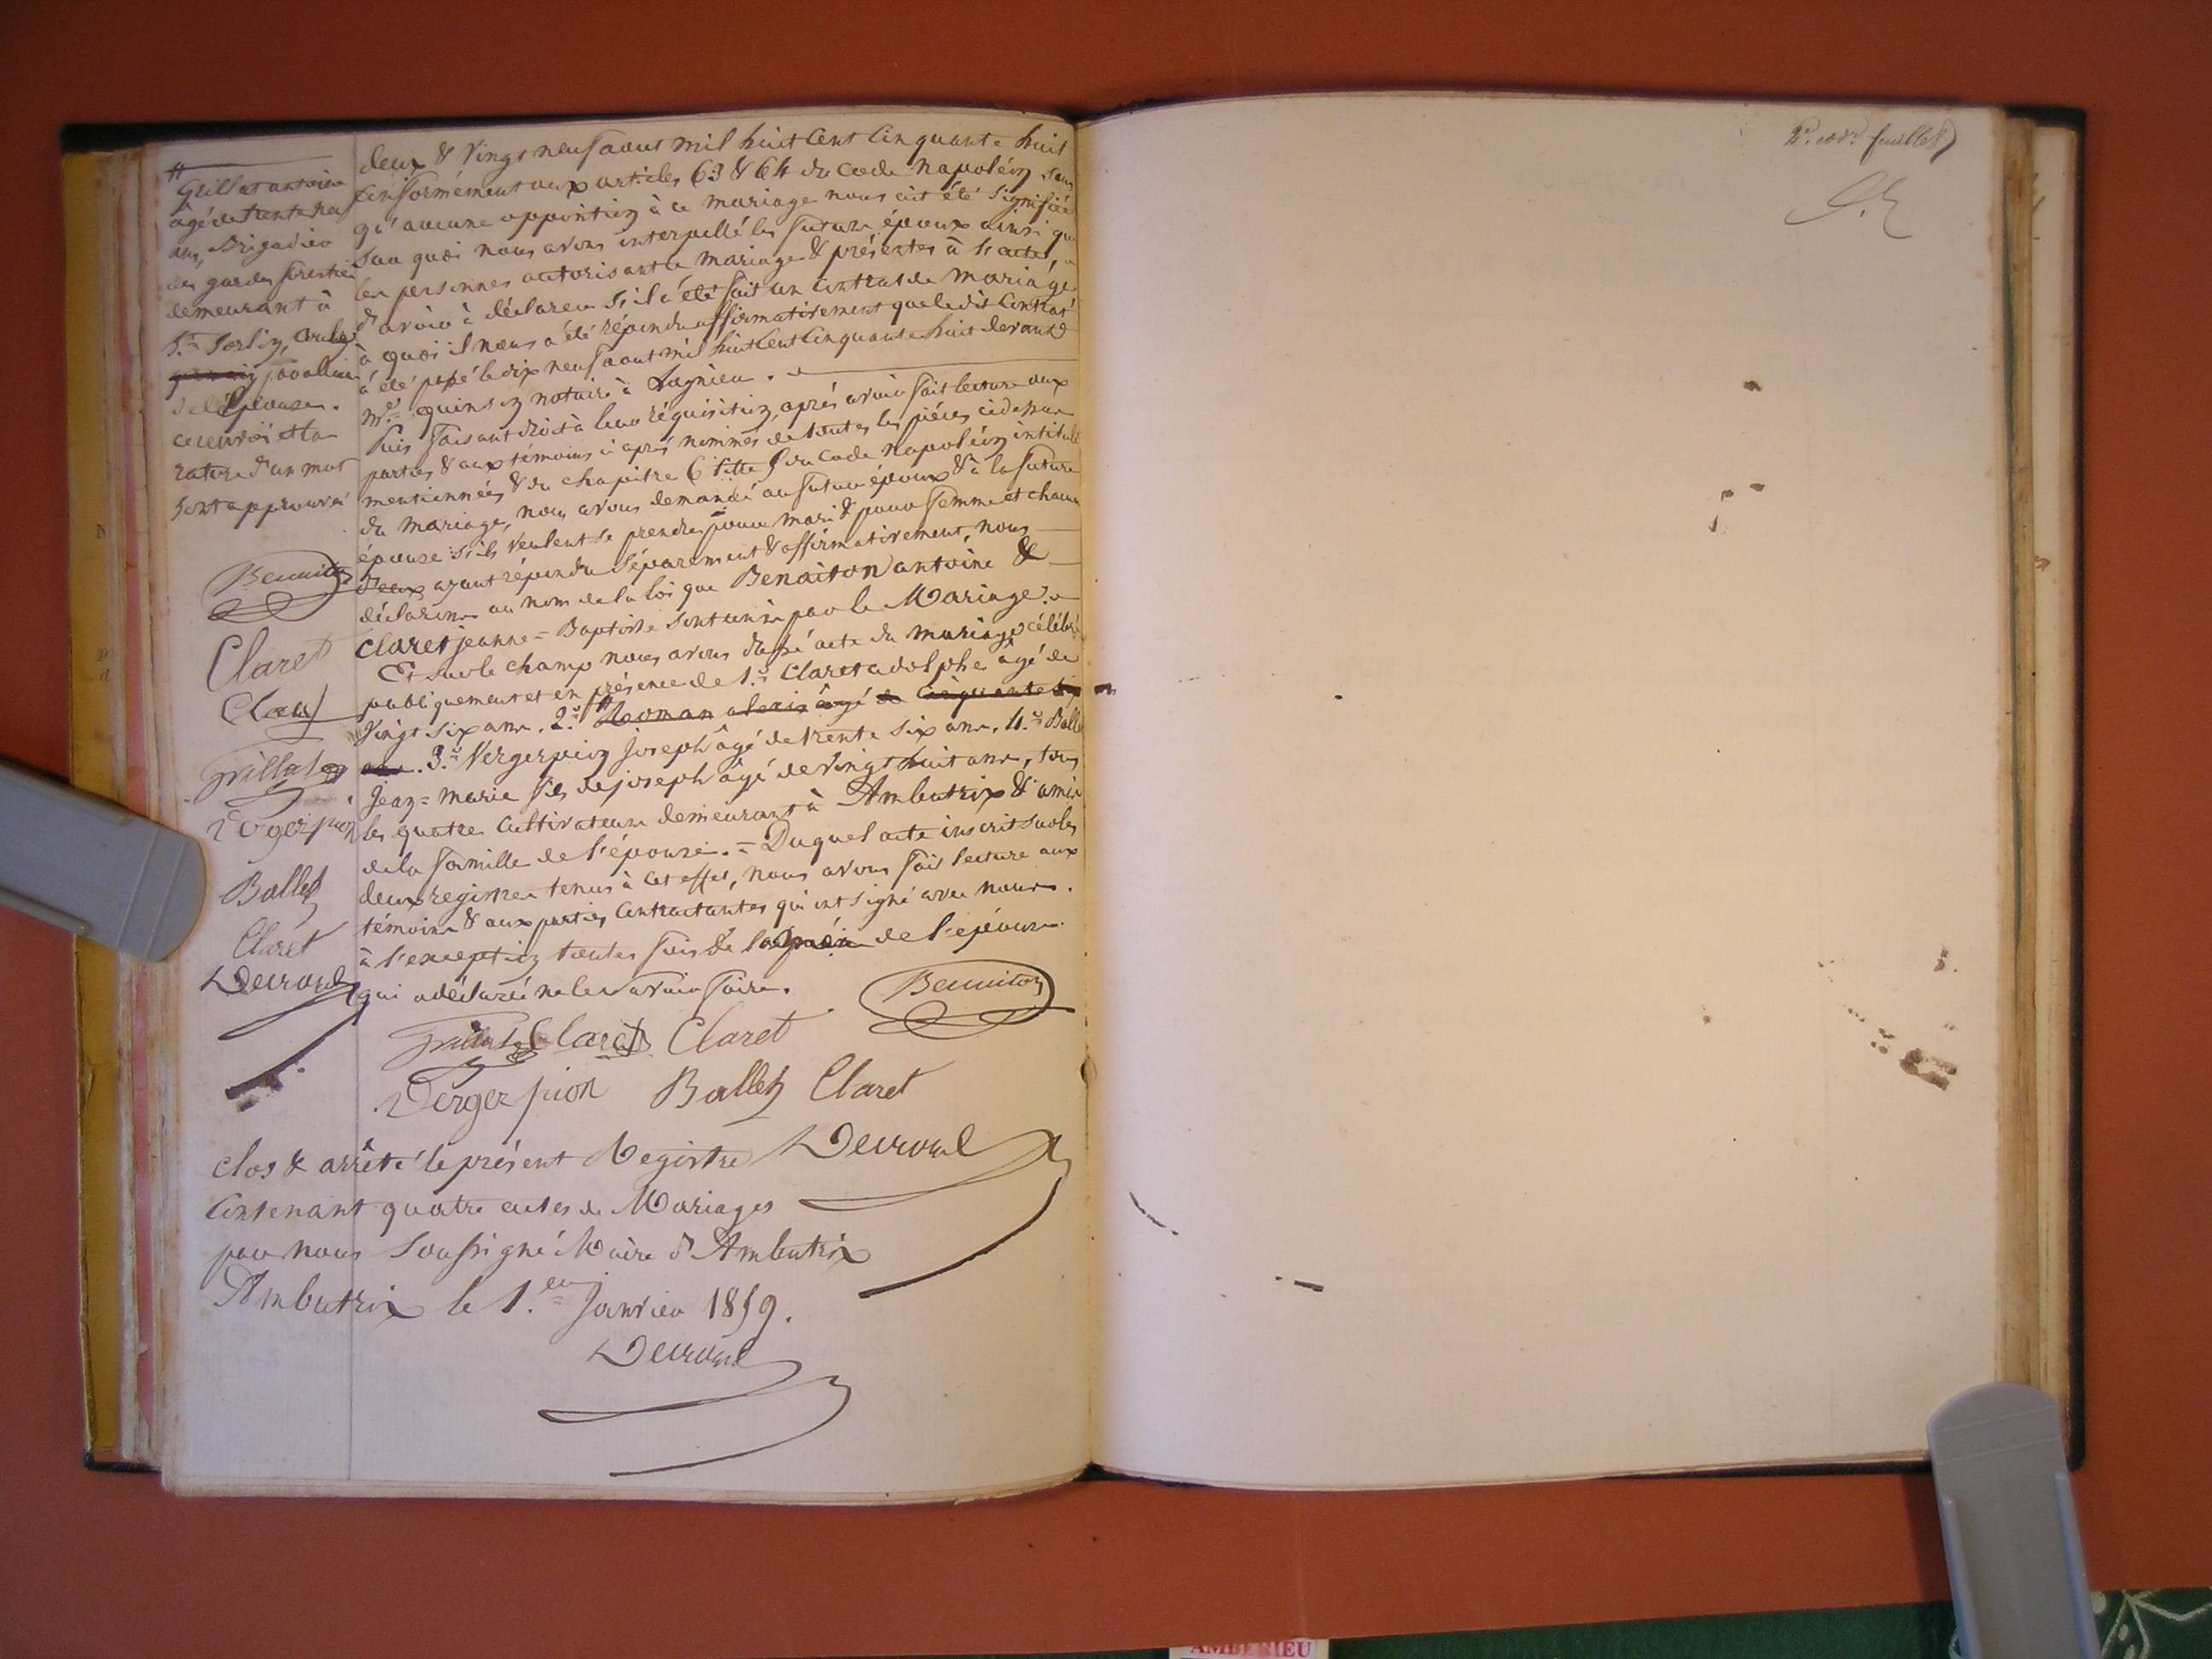 deux & vingt neuf aout mil huit cent cinquante huit
conformément aux articles 63 & 64 du code napoléon sans
qu'aucune opposition à ce mariage nous ait été signifiée
sur quoi nous avons interpellé les futurs époux ainsi que
les personnes autorisant le mariage & présentes à l'acte,
d'avoir à déclarer s'il a été fait un contrat de mariage
à quoi il nous a été répondu affirmativement que le dit contrat
à été passé le dix neuf aout mil huit cent cinquante huit devant
Me quinson notaire à Lagnieu.
Puis faisant droit à leur réquisition, après avoir fait lecture aux
parties & aux témoins ci après nommés de toutes les pièces cidessus
mentionnées & du chapitre 6 titre 5 du Code Napoléon intitulé
du mariage, nous avons demandé au futur époux & à la future
épouse s'ils veulent se prendre pour mari & pour femme et chacun
d'eux ayant répondu séparément & affirmativement, nous
déclarons au nom de la loi que Benoiton antoine &
Claret jeanne = Baptiste sont unis par le Mariage.
Et sur le champ nous avons dressé acte du mariage célébré
publiquement et en présence de 1.º Claret adolphe âgé de
Vingt six ans. 2.º # Roman alexis âgé de Cinquante six
ans. 3.º Vergerpion joseph âgé de trente six ans. 4.º Ballet
Jean = marie fils de joseph âgé de vingt huit ans, tous
les quatre cultivateurs demeurant à Ambutrix & amis
de la famille de l'épouse. = Duquel acte inscrit sur les
deux registres tenus à cet effet, nous avons fait lecture aux
témoins & aux parties contractantes qui ont signé avec nous.
à l'exception toutes fois de la mère de l'épouse
qui a déclaré ne le savoir faire.
Benoiton
Grillat Claret Claret
Vergerpion Ballet Claret
Clos & arrêté le présent Registre
Contenant quatre actes de Mariages
par nous soussigné Maire d'Ambutrix
Ambutrix le 1.er Janvier 1859.
#
Grillat antoine
âgé de trente
ans, Brigadier
des gardes forestiers
demeurant à
St Sorlin,
de l'épouse.
ce renvoi et la
rature d'un mot
sont approuvés
Benoiton
Claret
Claret
Grillat
Vergerpion
Ballet
Claret
feuillet